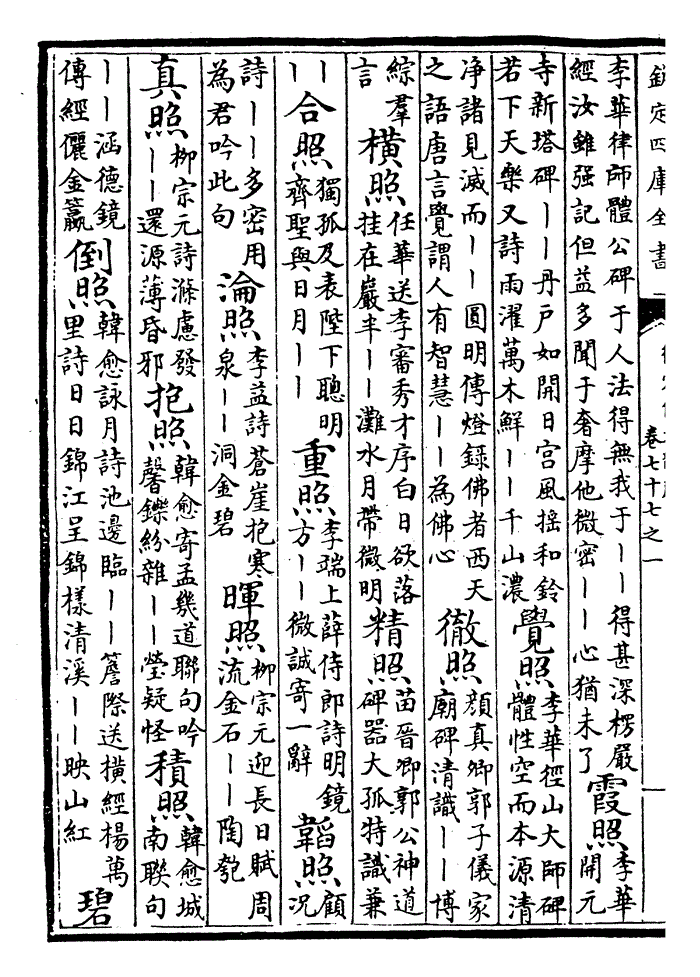 欽定四庫全書 卷七十七之一
李華律師體公碑于人法得無我于丨丨得甚深楞嚴經汝雖强記但益多聞于奢摩他微密丨丨心猶未了霞照李華開元
寺新塔碑丨丨丹戶如開日宮風摇和鈴若下天樂又詩雨濯萬木鮮丨丨千山濃覺照李華徑山大師碑體性空而本源清
净諸見滅而丨丨圓明傳燈録佛者西天之語唐言覺謂人有智慧丨丨為佛心徹照顔真卿郭子儀家廟碑清識丨丨博
綜羣言橫照任華送李審秀才序白日欲落挂在巖半丨丨灘水月帶微明精照苗晉卿郭公神道碑器大孤特識兼
丨丨合照獨孤及表陛下聰明齊聖與日月丨丨重照李端上薛侍郎詩明鏡方丨丨微誠寄一辭韜照顧况
詩丨丨多密用為君吟此句淪照李益詩蒼崖抱寒泉丨丨洞金碧暉照柳宗元迎長日賦周流金石丨丨陶匏
真照柳宗元詩滌慮發丨丨還源薄昏邪抱照韓愈寄孟幾道聯句吟馨鑠紛雜丨丨瑩疑怪積照韓愈城南聯句
丨丨涵德鏡傳經儷金籯倒照韓愈詠月詩池邊臨丨丨簷際送橫經楊萬里詩日日錦江呈錦樣清溪丨丨映山紅碧